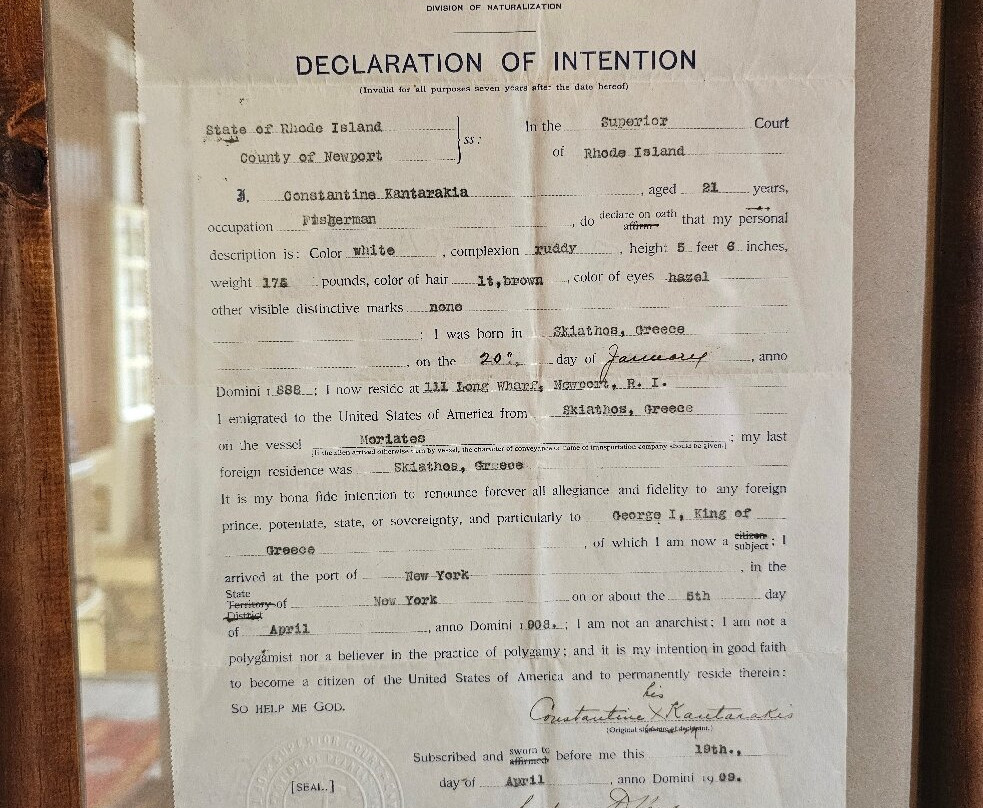 DIVISION OF NATURALIZATION
DECLARATION OF INTENTION
(Invalid for all purposes seven years after the date hereof)
State of Rhode Island
County of Newport
ss:
In the Superior Court
of Rhode Island
I, Constantine Kantarakia, aged 21 years,
occupation Fisherman, do declare on oath affirm that my personal
description is: Color white, complexion ruddy, height 5 feet 6 inches,
weight 175 pounds, color of hair lt,brown, color of eyes hazel
other visible distinctive marks none
; I was born in Skiathos, Greece
, on the 20", day of January, anno
Domini 1888; I now reside at 111 Long Wharf, Newport, R. I.
I emigrated to the United States of America from Skiathos, Greece
on the vessel Moriates; my last
(If the alien arrived otherwise than by vessel, the character of conveyance or name of transportation company should be given.)
foreign residence was Skiathos, Greece
It is my bona fide intention to renounce forever all allegiance and fidelity to any foreign
prince, potentate, state, or sovereignty, and particularly to George I, King of
Greece, of which I am now a citizen subject; I
arrived at the port of New York, in the
State Territory District of New York on or about the 5th day
of April, anno Domini 1908.; I am not an anarchist; I am not a
polygamist nor a believer in the practice of polygamy; and it is my intention in good faith
to become a citizen of the United States of America and to permanently reside therein:
SO HELP ME GOD.
his
Constantine X Kantarakis
(Original signature of declarant.)
Subscribed and sworn to affirmed before me this 19th.,
[SEAL.]
day of April, anno Domini 1909.